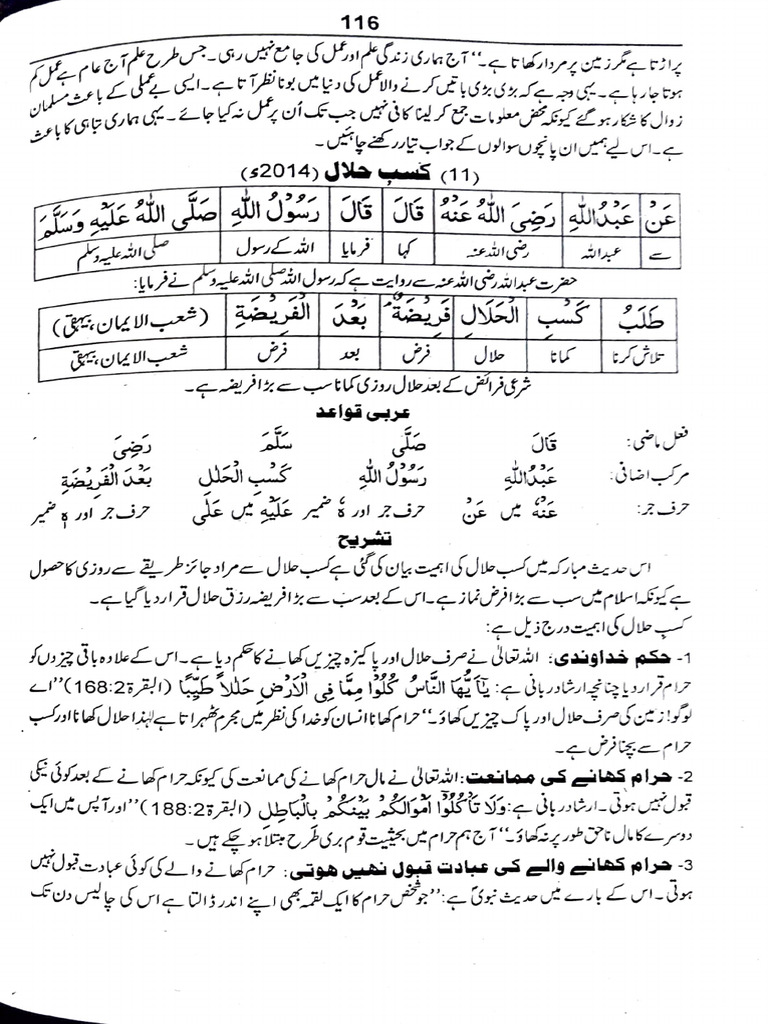 116
پر اڑتا ہے مگر زمین پر مردار کھاتا ہے۔‘‘ آج ہماری زندگی علم اور عمل کی جامع نہیں رہی۔ جس طرح علم آج عام ہے عمل کم
ہوتا جا رہا ہے۔ یہی وجہ ہے کہ بڑی بڑی باتیں کرنے والا عمل کی دنیا میں بونا نظر آتا ہے۔ ایسی بے عملی کے باعث مسلمان
زوال کا شکار ہو گئے کیونکہ محض معلومات جمع کر لینا کافی نہیں جب تک اُن پر عمل نہ کیا جائے۔ یہی ہماری تباہی کا باعث
ہے۔ اس لیے ہمیں ان پانچوں سوالوں کے جواب تیار رکھنے چاہئیں۔
(11) کسبِ حلال (2014ء)
عَنْ عَبْدُاللّٰهِ رَضِیَ اللّٰهُ عَنْهُ قَالَ قَالَ رَسُوْلُ اللّٰهِ صَلَّی اللّٰهُ عَلَیْهِ وَسَلَّمَ
سے عبداللہ رضی اللہ عنہ کہا فرمایا اللہ کے رسول صلی اللہ علیہ وسلم
حضرت عبداللہ رضی اللہ عنہ سے روایت ہے کہ رسول اللہ صلی اللہ علیہ وسلم نے فرمایا:
طَلَبُ كَسْبِ الْحَلَالِ فَرِيْضَةٌ بَعْدَ الْفَرِيْضَةِ (شعب الایمان، بیہقی)
تلاش کرنا کمانا حلال فرض بعد فرض شعب الایمان، بیہقی
شرعی فرائض کے بعد حلال روزی کمانا سب سے بڑا فریضہ ہے۔
عربی قواعد
فعل ماضی: قَالَ صَلّٰی سَلَّمَ رَضِیَ
مرکب اضافی: عَبْدُاللّٰهِ رَسُوْلُ اللّٰهِ كَسْبِ الْحَلٰلِ بَعْدَ الْفَرِيْضَةِ
حرف جر: عَنْهُ میں عَنْ حرف جر اور هٗ ضمیر عَلَيْهِ میں عَلٰی حرف جر اور هٖ ضمیر
تشریح
اس حدیث مبارکہ میں کسب حلال کی اہمیت بیان کی گئی ہے کسب حلال سے مراد جائز طریقے سے روزی کا حصول
ہے کیونکہ اسلام میں سب سے بڑا فرض نماز ہے۔ اس کے بعد سب سے بڑا فریضہ رزق حلال قرار دیا گیا ہے۔
کسبِ حلال کی اہمیت درج ذیل ہے:
1- حکم خداوندی: اللہ تعالیٰ نے صرف حلال اور پاکیزہ چیزیں کھانے کا حکم دیا ہے۔ اس کے علاوہ باقی چیزوں کو
حرام قرار دیا چنانچہ ارشاد ربانی ہے: يٰٓاَيُّهَا النَّاسُ كُلُوْا مِمَّا فِی الْاَرْضِ حَلٰلًا طَيِّبًا (البقرۃ 168:2)’’اے
لوگو! زمین کی صرف حلال اور پاک چیزیں کھاؤ۔‘‘ حرام کھانا انسان کو خدا کی نظر میں مجرم ٹھہراتا ہے لہٰذا حلال کھانا اور کسب
حرام سے بچنا فرض ہے۔
2- حرام کھانے کی ممانعت: اللہ تعالیٰ نے مال حرام کھانے کی ممانعت کی کیونکہ حرام کھانے کے بعد کوئی نیکی
قبول نہیں ہوتی۔ ارشاد ربانی ہے: وَلَا تَاْكُلُوْٓا اَمْوَالَكُمْ بَيْنَكُمْ بِالْبَاطِلِ (البقرۃ 188:2)’’اور آپس میں ایک
دوسرے کا مال ناحق طور پر نہ کھاؤ۔‘‘ آج ہم حرام میں بحیثیت قوم بری طرح مبتلا ہو چکے ہیں۔
3- حرام کھانے والے کی عبادت قبول نہیں ہوتی: حرام کھانے والے کی کوئی عبادت قبول نہیں
ہوتی۔ اس کے بارے میں حدیث نبویؐ ہے: ’’جو شخص حرام کا ایک لقمہ بھی اپنے اندر ڈالتا ہے اس کی چالیس دن تک